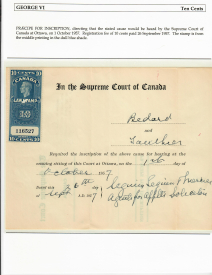 GEORGE VI
Ten Cents
PRAECIPE FOR INSCRIPTION, directing that the stated cause would be heard by the Supreme Court of Canada at Ottawa, on 1 October 1957. Registration fee of 10 cents paid 26 September 1957. The stamp is from the middle printing in the dull blue shade.
10 CENTS 10 CENTS
CANADA
LAW STAMP
10
116527
In the Supreme Court of Canada
Bedard
and
Gauthier
Required the inscription of the above cause for hearing at the
ensuing sitting of this Court at Ottawa, on the 1st day of
October 1957
Dated this 26th day
of Sept A.D. 1957